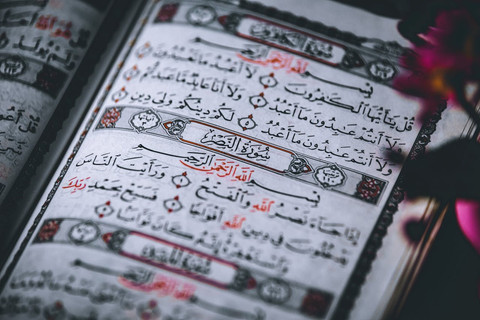 سُورَةُ الْكَافِرُونَ
بِسْمِ اللَّهِ الرَّحْمَٰنِ الرَّحِيمِ
قُلْ يَٰٓأَيُّهَا الْكَٰفِرُونَ لَا أَعْبُدُ مَا تَعْبُدُونَ
وَلَا أَنتُمْ عَٰبِدُونَ مَا أَعْبُدُ وَلَا أَنَا عَابِدٌ مَّا عَبَدتُّمْ
وَلَا أَنتُمْ عَٰبِدُونَ مَا أَعْبُدُ لَكُمْ دِينُكُمْ وَلِيَ دِينِ
سُورَةُ النَّصْرِ
بِسْمِ اللَّهِ الرَّحْمَٰنِ الرَّحِيمِ
إِذَا جَاءَ نَصْرُ اللَّهِ وَالْفَتْحُ وَرَأَيْتَ النَّاسَ
يَدْخُلُونَ فِي دِينِ اللَّهِ أَفْوَاجًا فَسَبِّحْ بِحَمْدِ رَبِّكَ
وَاسْتَغْفِرْهُ إِنَّهُ كَانَ تَوَّابًا